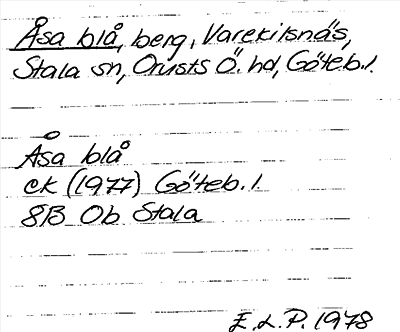 Åsa blå, berg, Varekilsnäs,
Stala sn, Orusts Ö. hd, Göteb. l.
Åsa blå
ek (1977) Göteb. l.
8B Ob Stala
E.L.P. 1978